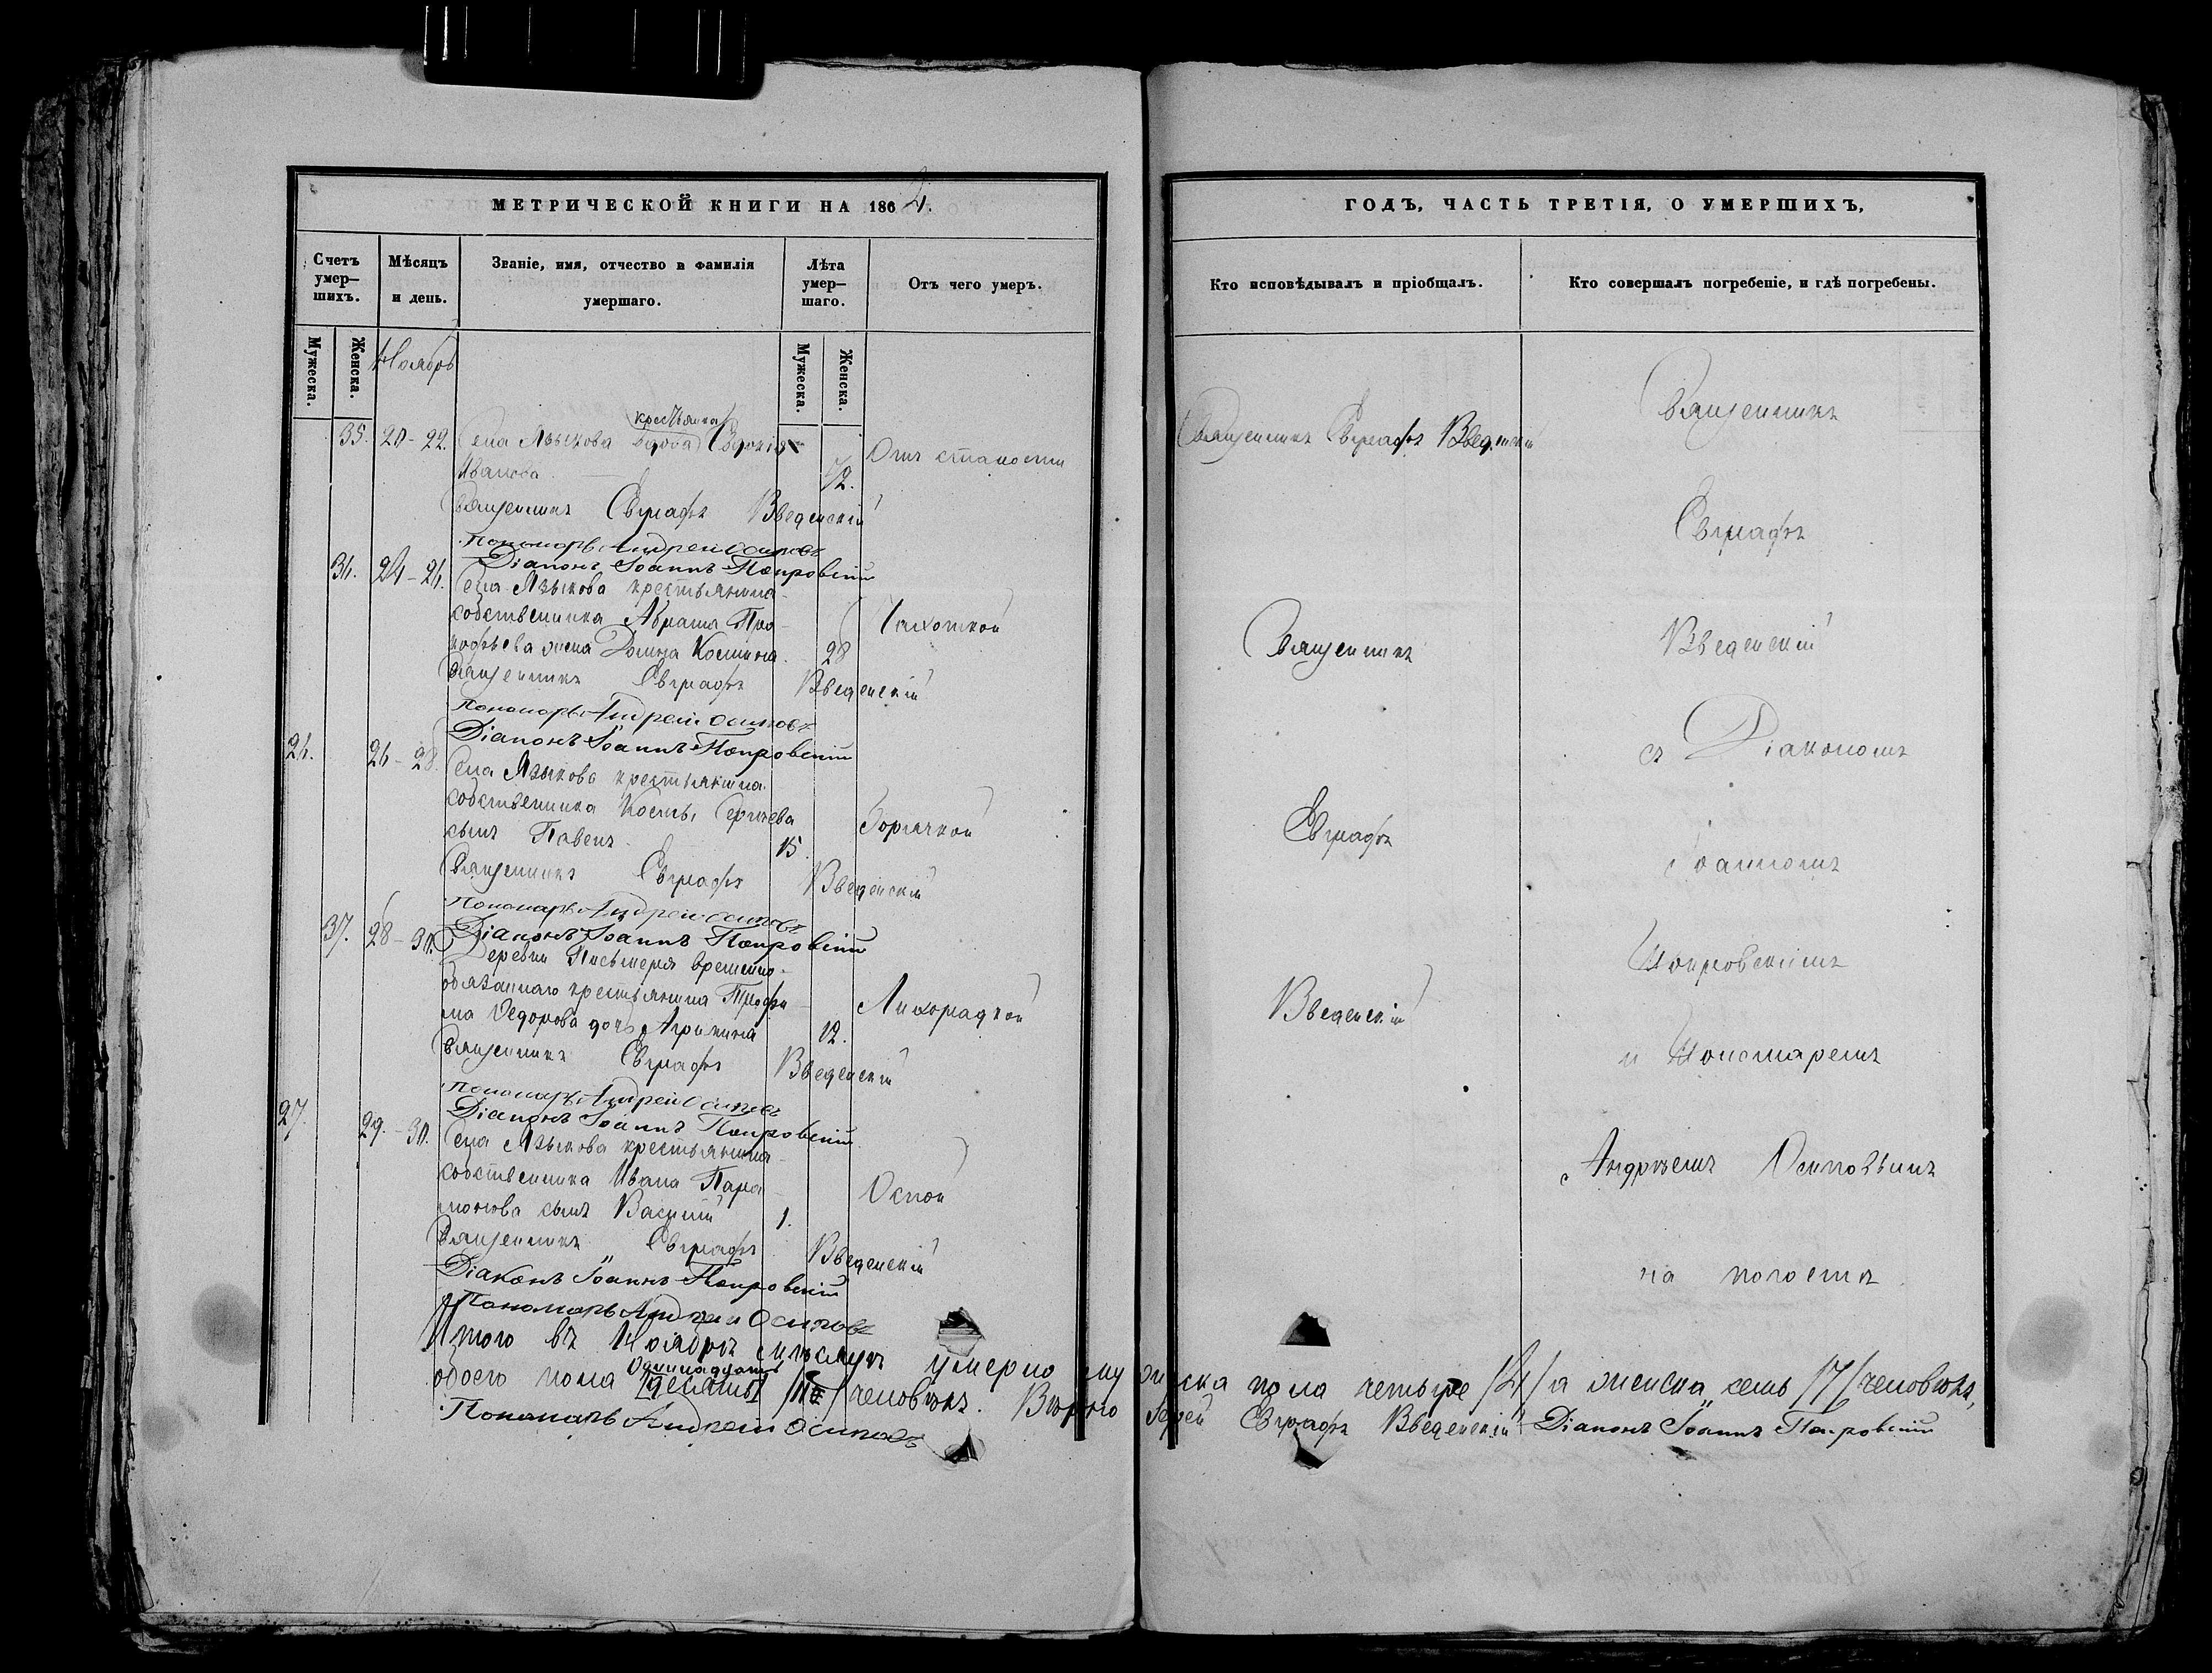 МЕТРИЧЕСКОЙ КНИГИ НА 1862.
Счетъ умер-шихъ.
Мѣсяцъ и день.
Званіе, имя, отчество и фамилія умершаго.
Лѣта умер-шаго.
Отъ чего умеръ.
Мужеска.
Женска.
Ноябрь
Мужеска.
Женска.
крестьянка
35. 20-22. Села Языкова вдова Евдокія
Иванова 72. Отъ старости
Священникъ Евграфъ Введенскій
Пономарь Андрей Осиповъ
Діаконъ Іоаннъ Покровскій
36. 24-26. Села Языкова крестьянина
собственника Абрама Про-
кофьева жена Домна Космина. 28 Чахоткой
Священникъ Евграфъ Введенскій
Пономарь Андрей Осиповъ
Діаконъ Іоаннъ Покровскій
26. 26-28. Села Языкова крестьянина
собственника Космы Сергѣева
сынъ Павелъ 15. Горячкой
Священникъ Евграфъ Введенскій
Пономарь Андрей Осиповъ
Діаконъ Іоаннъ Покровскій
37. 28-30. Деревни Письмеря временно-
обязаннаго крестьянина Трофи-
ма Ѳедорова дочь Агрипина 12. Лихорадкой
Священникъ Евграфъ Введенскій
Пономарь Андрей Осиповъ
Діаконъ Іоаннъ Покровскій
27. 29.-30. Села Языкова крестьянина
собственника Ивана Пара-
монова сынъ Василій 1. Оспой
Священникъ Евграфъ Введенскій
Діаконъ Іоаннъ Покровскій
Пономарь Андрей Осиповъ
Итого въ Ноябрѣ мѣсяцѣ умерло мужеска пола четыре /4/ а женска семь /7/ человѣкъ,
Одиннадцать
обоего пола [десять] /11/ человѣкъ. Вѣрно Іерей Евграфъ Введенскій Діаконъ Іоаннъ Покровскій
Пономарь Андрей Осиповъ
ГОДЪ, ЧАСТЬ ТРЕТІЯ, О УМЕРШИХЪ,
Кто исповѣдывалъ и пріобщалъ.
Кто совершалъ погребеніе, и гдѣ погребены.
Священникъ Евграфъ Введенскій
Священникъ
Евграфъ
Введенскій
Священникъ
Евграфъ
Введенскій
съ Діакономъ
Іоанномъ
Покровскимъ
и Пономаремъ
Андрѣемъ Осиповымъ
на погостѣ